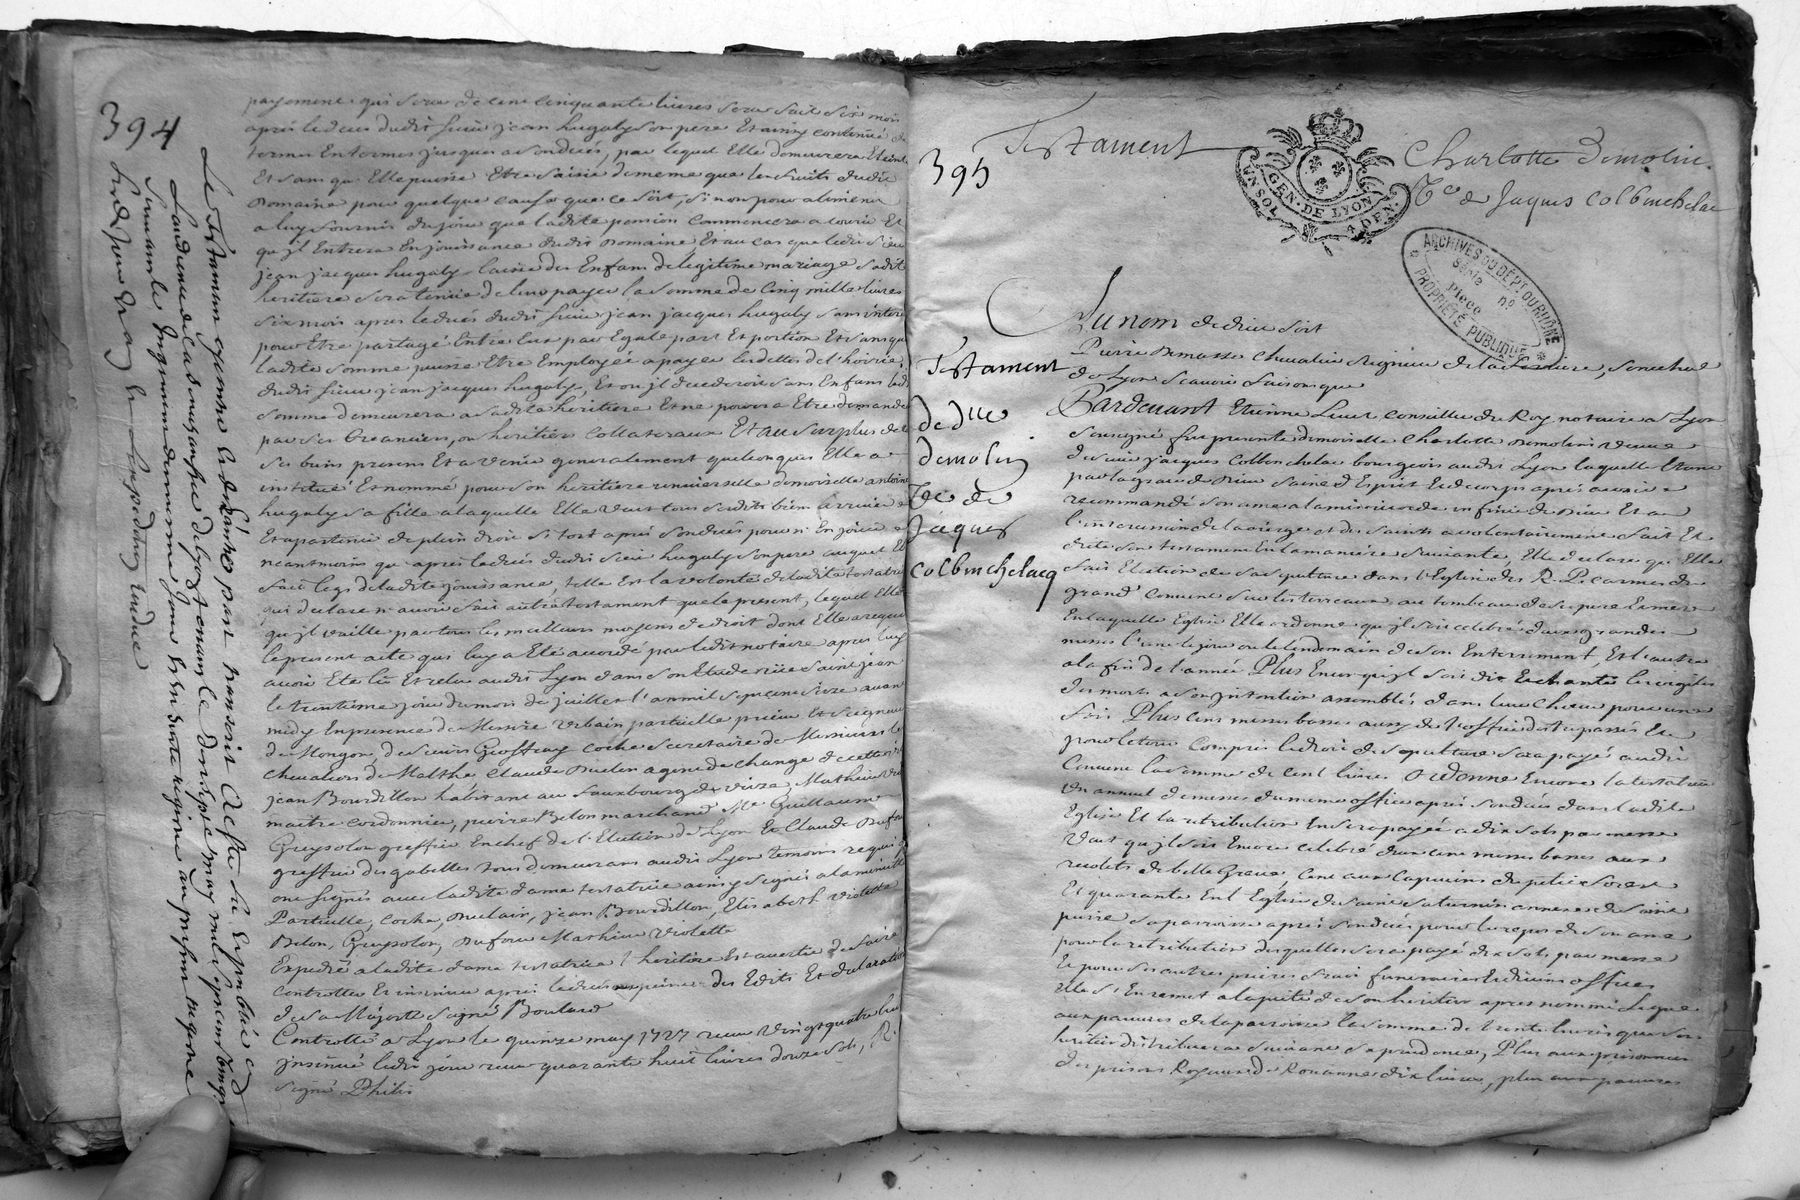 394
payement qui sera de cent cinquante livres sera fait six mois
apres le deces dudit sieur jean hugaly son pere Et ainsy continué de
termes En termes jusques a son deces, par lequel Elle demeurera Eteinte
Et sans qu'Elle puisse Etre saisie de meme que les fruits dudit
Domaine pour quelque cause que ce soit, si non pour alimens
a luy fournis du jour que ladite pension commencera a courir Et
qu'jl Entrera En jouissance dudit Domaine, Et au cas que ledit sieur
jean jacques hugaly laisse des Enfans de legitime mariage sadite
heritiere sera tenüe de leur payer la somme de Cinq mille livres
six mois apres le deces dudit sieur jean jacques hugaly sans interets
pour Etre partagé Entre Eux par Egale part Et portion Et sans que
ladite somme puisse Etre Employée a payer les dettes de l'hoirie
dudit sieur jean jacques hugaly, Et ou jl decederoit sans Enfans lad.
somme demeurera a sadite heritiere Et ne pourra Etre demandée
par ses Creanciers, ou heritiers Collateraux Et au surplus de
ses biens presens Et a venir generalement quelconques Elle a
institué Et nommé pour son heritiere universelle demoiselle antoinette
hugaly sa fille a laquelle Elle veut tous sesdits biens arriver
Et apartenir de plein droit si tost apres son deces pour n'En jouir
neantmoins qu'apres le deces dudit sieur hugaly son pere auquel Elle
fait legs de ladite jouissance, telle Est la volonté de ladite testatrice
qui declare n'avoir fait autre testament que le present, lequel Elle veut
qu'jl vaille par tous les meilleurs moyens de droit dont Elle a requis
le present acte qui luy a Eté accordé par ledit notaire apres luy
avoir Eté lû Et relu audit Lyon dans son Etude rüe Saint jean
le trentieme jour du mois de juillet l'an mil sept cent seize avant
midy En presence de Messire Urbain partielle prieur Et Seigneur
de Mongon, de sieurs Geoffray Coche secretaire de Messieurs les
Chevaliers de Malthe, Claude Duclair agent de change de cette ville
jean Bourdillon habitant au fauxbourg de veize, Mathieu violette
maitre cordonnier, pierre Belon marchand Me Guillaume
Greysolon greffier En chef de l'Election de Lyon Et Claude Dufour
greffier des gabelles tous demeurans audit Lyon temoins requis qui
ont signés avec ladite dame testatrice ainsy signés a la minutte
Partielle, Coche, Duclair, jean Bourdillon, Elisabeth violette
Belon, Greysolon, Dufour Mathieu violette
Expedié a ladite dame testatrice l'heritiere Est avertie de faire
Controller Et insinuer apres le deces aux peines des Edits Et declarations
de sa Majesté signé Boulard
Controllé a Lyon le quinze may 1727 recu vingt quatre livres
jnsinué ledit jour recu quarante huit livres douze sols, R.
signé Philis
395
Testament
Charlotte Demolin
Ve de Jaques Colbenchelac
GEN. DE LYON
UN SOL 4 DEN.
ARCHIVES DU DEPT DU RHÔNE
Série n°
Pièce
PROPRIÉTÉ PUBLIQUE
Testament
de dlle
demolin
Ve de
Jacques
Colbenchelacq
Au nom de dieu soit
Pierre Demasso Chevalier Seigneur de la ferriere, senechal
de Lyon Scavoir faisons que
Pardevant Etienne Livet Conseiller du Roy notaire a Lyon
soussigné fut presente Demoiselle Charlotte Demolin veuve
de sieur jacques Colbenchelac bourgeois audit Lyon laquelle Etant
par la grace de Dieu saine d'Esprit Et de corps apres avoir
recommandé son ame a la misericorde infinie de Dieu Et a
l'intercession de la vierge et des saints a volontairement fait Et
dicté son testament En la maniere suivante, Elle declare qu'Elle
fait Election de sa sepulture dans l'Eglise des R. P. carmes du
grand Couvent sur les terreaux, au tombeau de ses pere Et mere
En laquelle Eglise Elle ordonne qu'jl soit celebré deux grandes
messes l'une le jour ou le lendemain de son Enterrement, Et l'autre
a la fin de l'année Plus Encor qu'jl soit dit Et chanté les vigiles
des morts a son jntention assemblés dans leur Choeur pour une
fois Plus cent messes basses aussy de l'office des trepassés Et
pour le tout Compris le droit de sepulture sera payé audit
Couvent la somme de cent livres Ordonne Encore la testatrice
un annuel de messes du meme office apres son deces dans ladite
Eglise Et la retribution En sera payée a dix sols par messe
Veut qu'jl soit Encore celebré deux cent messes basses aux
recolets de belle Greve, cent aux Capucins du petit Forest
Et quarante En l'Eglise de Saint Saturnin annexe de Saint
pierre sa parroisse apres son deces pour le repos de son ame
pour la retribution desquelles sera payé dix sols par messe
Et pour ses autres prieres frais funeraires Et divins offices
Elle s'En remet a la pieté de son heritier apres nommé, Legue
aux pauvres de la parroisse la somme de trente livres que son
heritier distribuera suivant sa prudence, Plus aux prisonniers
des prisons Royaux de Rouanne dix livres, plus aux pauvres